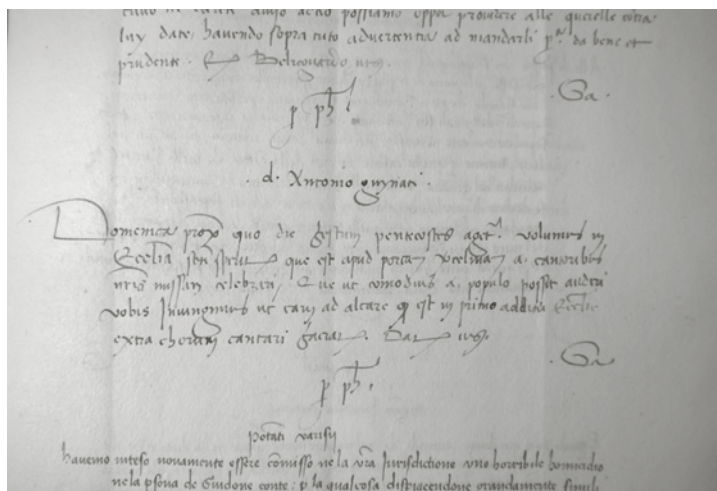 possiamo oppor providere alle querelle contra
luy date, havendo sopra tuto advertentia ad mandarli pna da bene et
prudente.
p ph.
Ga.
d. Antonio guynati.
Domenica proxa quo die festum pentecostes aget. volumus in
Ecclia scti spiritus que est apud portam vcelinam a. cantoribus
nris missam celebrari, Que ut comodius a. populo possit audiri
vobis Iniungimus ut eam ad altare qd est in primo additu Ecclie
extra chorum cantari faciat. Dat. ut s.
Ga
p ph.
potati varisij
havemo inteso novamente essere comisso ne la vra Jurisdictione uno horribile homicidio
ne la psona de Guidone conte: p la qualcosa dispiacendone grandamente simili